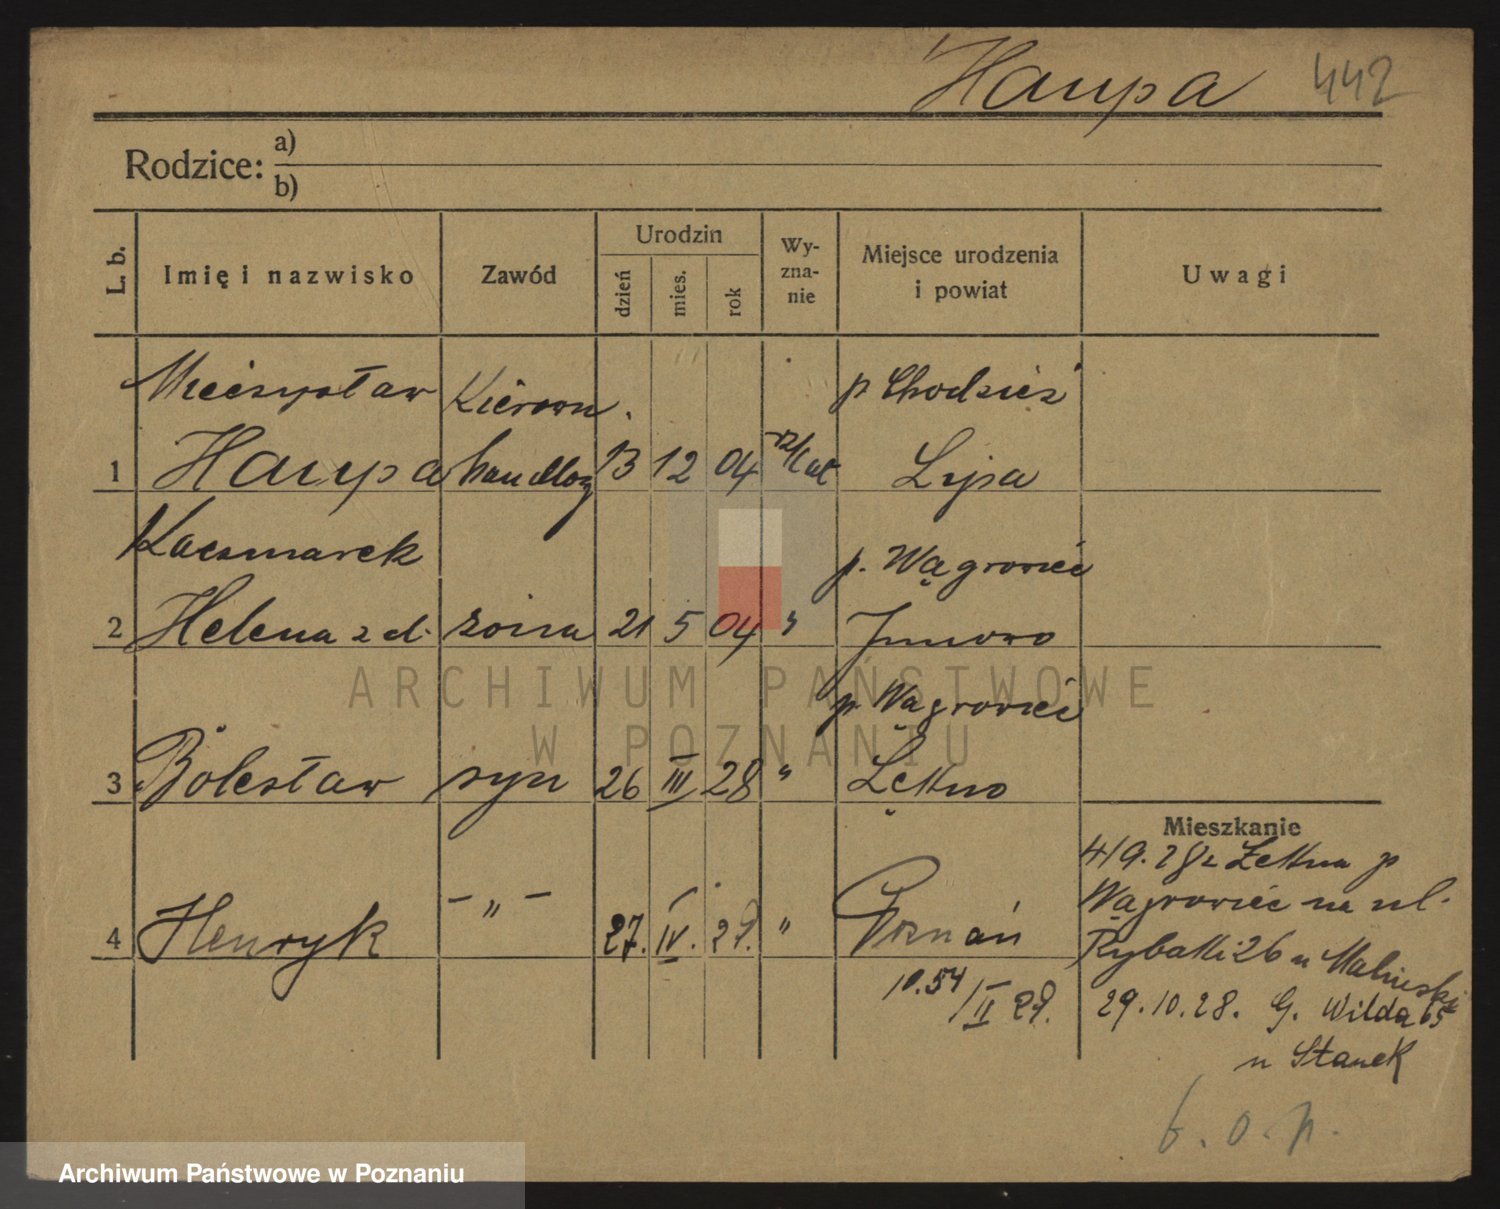 Haupa 442
Rodzice: a)
b)
L. b. Imię i nazwisko Zawód Urodzin dzień mies. rok Wy-zna-nie Miejsce urodzenia i powiat Uwagi
Mieczysław Kierown. p Chodzież
1 Haupa handlowy 13 12 04 kat Lipa
Kaczmarek p. Wągrowiec
2 Helena z d. żona 21 5 04 " 
p. Wągrowiec
3 Bolesław syn 26 III 28 " Łekno
Mieszkanie
4/9. 28 z Łekna p
4 Henryk - " - 27. IV. 29. " Poznań
Wągrowiec na ul.
Rybaki 26 u Malinski
10.54/II 29.
29.10.28. G. Wilda 65
u Stanek
b. o. p.
ARCHIWUM PAŃSTWOWE
W POZNANIU
Archiwum Państwowe w Poznaniu